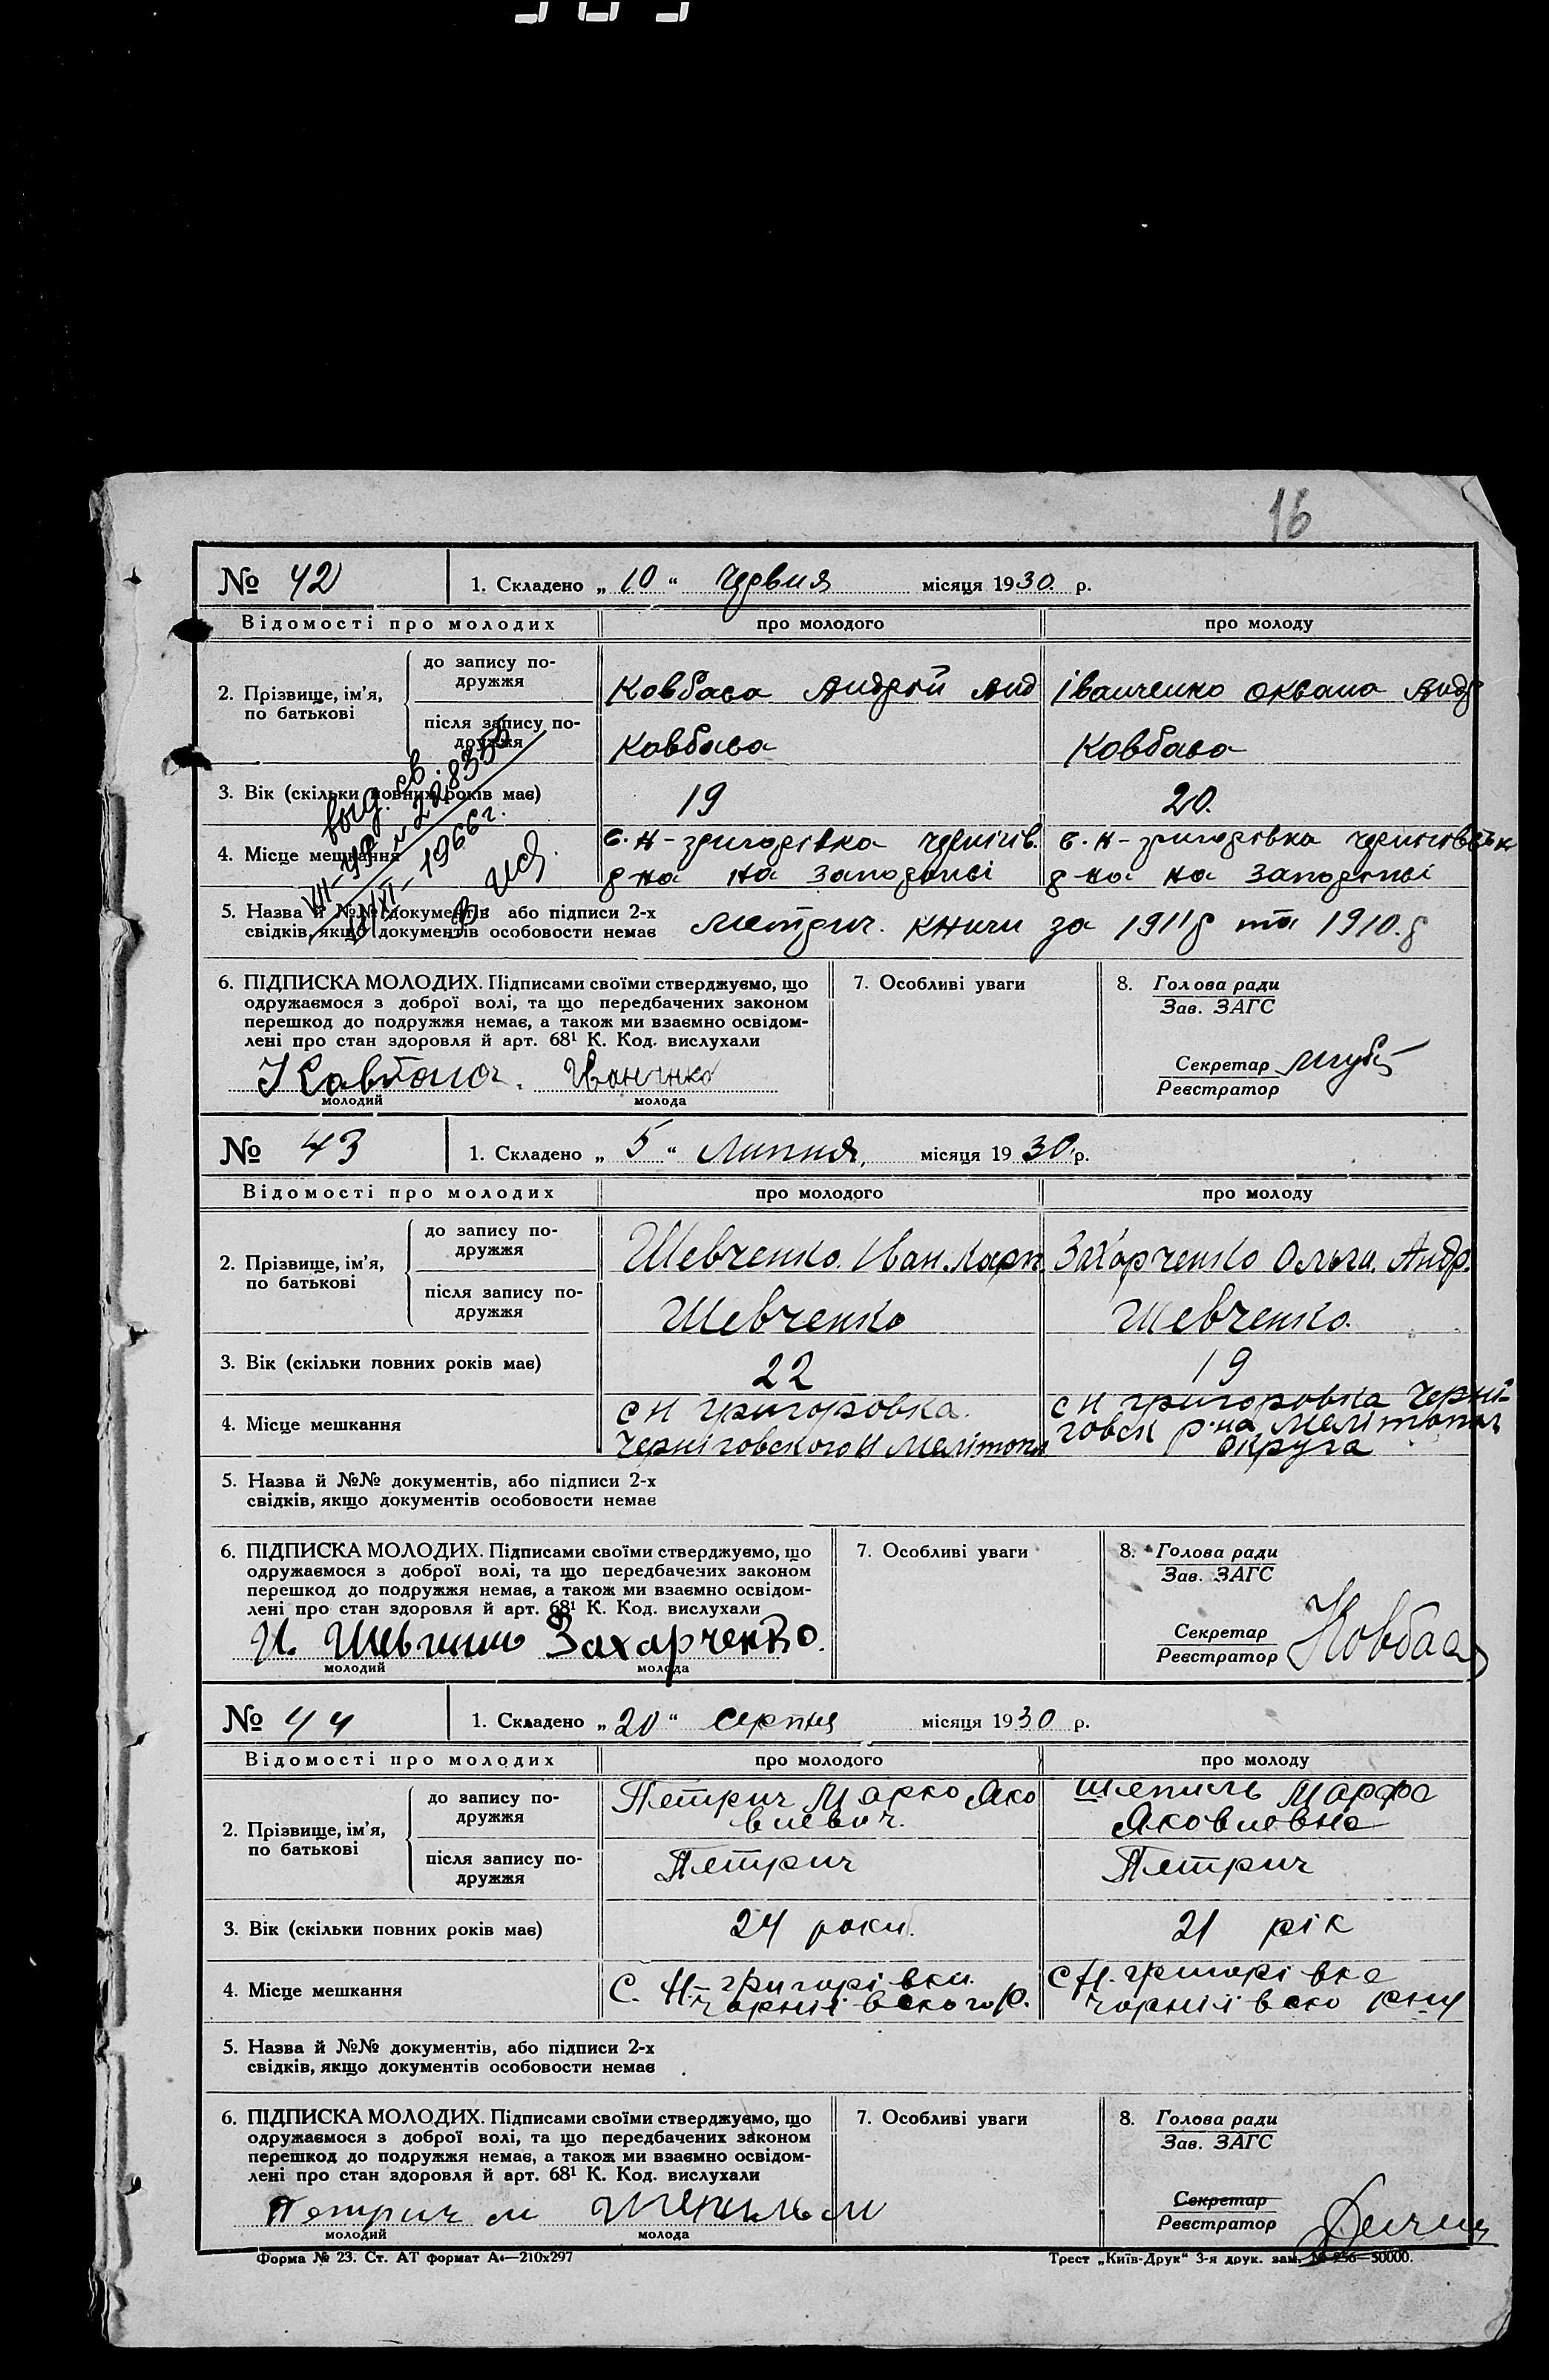 16
№ 42 1. Складено „ 10 “ Червня місяця 1930. р.
Відомості про молодих про молодого про молоду
2. Прізвище, ім’я, по батькові
до запису по-
дружжя
Ковбаса Андрей Анд Іванченко Оксана Андр
після запису по-
дружжя
Ковбаса Ковбаса
3. Вік (скільки повних років має) 19 20.
4. Місце мешкання
С. Н-Григорівка Чернігів. С. Н-Григорівка Чернігівськ
р-на на Запоріжжі р-на на Запоріжжі
выд. св.
VII-УЯ №
XI-1966 г.
5. Назва й №№ документів або підписи 2-х
свідків, якщо документів особовости немає
Метрич. книги за 1911р та 1910.р
6. ПІДПИСКА МОЛОДИХ. Підписами своїми стверджуємо, що
одружаємося з доброї волі, та що передбачених законом
перешкод до подружжя немає, а також ми взаємно освідом-
лені про стан здоровля й арт. 68¹ К. Код. вислухали
Іванченко
молодий молода
7. Особливі уваги
8. Голова ради
Зав. ЗАГС
Секретар
Реєстратор
№ 43 1. Складено „ 5 “ Липня, місяця 1930 р.
Відомості про молодих про молодого про молоду
2. Прізвище, ім’я, по батькові
до запису по-
дружжя
Шевченко Іван. Карп. Захарченко Ольга. Андр.
після запису по-
дружжя
Шевченко Шевченко.
3. Вік (скільки повних років має) 22 19
4. Місце мешкання
с Н Григоровка. с Н Григоровка Черні-
Черніговского Н Мелітопол говск р-на Мелітопол
округа
5. Назва й №№ документів, або підписи 2-х
свідків, якщо документів особовости немає
6. ПІДПИСКА МОЛОДИХ. Підписами своїми стверджуємо, що
одружаємося з доброї волі, та що передбачених законом
перешкод до подружжя немає, а також ми взаємно освідом-
лені про стан здоровля й арт. 68¹ К. Код. вислухали
И. Шевченко Захарченко.
молодий молода
7. Особливі уваги
8. Голова ради
Зав. ЗАГС
Секретар
Реєстратор
Ковбаса
№ 44 1. Складено „ 20 “ серпня місяця 1930 р.
Відомості про молодих про молодого про молоду
2. Прізвище, ім’я, по батькові
до запису по-
дружжя
Петрич Марко Яко Шепиль Марфа
влевич. Яковлевна
після запису по-
дружжя
Петрич Петрич
3. Вік (скільки повних років має) 24 роки. 21 рік
4. Місце мешкання
С. Н.-Григорівки. С Н. Григорівка
Чорнігівского р. Чорнігівско рну
5. Назва й №№ документів, або підписи 2-х
свідків, якщо документів особовости немає
6. ПІДПИСКА МОЛОДИХ. Підписами своїми стверджуємо, що
одружаємося з доброї волі, та що передбачених законом
перешкод до подружжя немає, а також ми взаємно освідом-
лені про стан здоровля й арт. 68¹ К. Код. вислухали
Петрич м Шепиль м
молодий молода
7. Особливі уваги
8. Голова ради
Зав. ЗАГС
Секретар
Реєстратор
Форма № 23. Ст. АТ формат А₄—210x297 Трест „Київ-Друк“ 3-я друк. зам. № 256—50000.